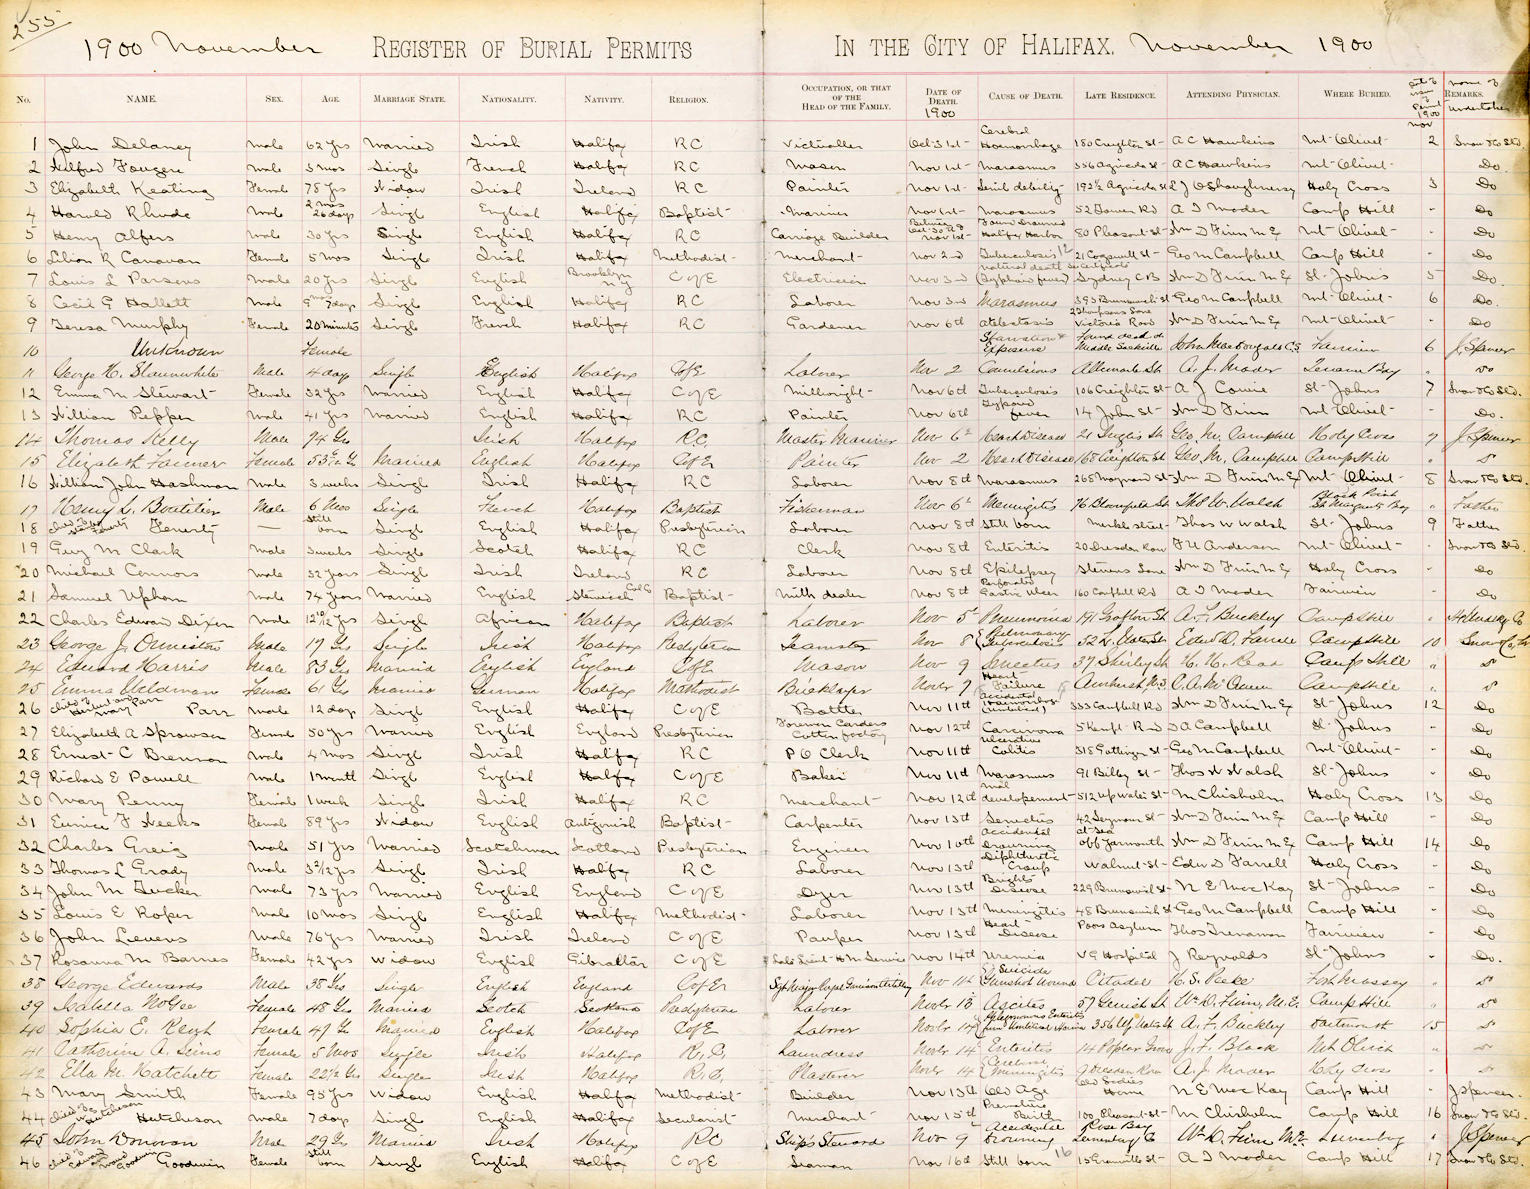 255
1900 November REGISTER OF BURIAL PERMITS IN THE CITY OF HALIFAX. November 1900
No. NAME. SEX. AGE. MARRIAGE STATE. NATIONALITY. NATIVITY. RELIGION. OCCUPATION, OR THAT OF THE HEAD OF THE FAMILY. DATE OF DEATH. 1900 CAUSE OF DEATH. LATE RESIDENCE. ATTENDING PHYSICIAN. WHERE BURIED. 1900 Nov REMARKS. Name of Undertaker
1 John Delaney Male 62 yrs Married Irish Halifax RC Victualler Oct 31st Cerebral Hoemorrhage 180 Creighton St A C Hawkins Mt Olivet 2 Snow & Co Ltd.
2 Wilfred Fougere Male 5 mos Single French Halifax RC Mason Nov 1st Marasmus 336 Agricola St A C Hawkins Mt Olivet " Do
3 Elizabeth Keating Female 78 yrs Widow Irish Ireland RC Painter Nov 1st Senile debility 192½ Agricola St L J OShaughnessy Holy Cross 3 Do
4 Harold Rhude Male 2 mos 26 days Single English Halifax Baptist Mariner Nov 1st Marasmus 52 Tower Rd A I Mader Camp Hill " Do
5 Henry Alfers Male 30 yrs Single English Halifax RC Carriage Builder Between Oct 30 & Nov 1st Found Drowned Halifax Harbor 80 Pleasant St Wm D Finn M Ex Mt Olivet " Do
6 Lilian R Canavan Female 5 mos Single Irish Halifax Methodist Merchant Nov 2nd Tuberculosis 12 21 Cogswell St Geo M Campbell Camp Hill " Do
7 Louis L Parsons Male 20 yrs Single English Brooklyn NY C of E Electrician Nov 3rd natural death se certificate (Typhoid fever) Sydney CB Wm D Finn M Ex St Johns 5 Do
8 Cecil G Hallett Male 9 mos 7 days Single English Halifax RC Laborer Nov 3rd Marasmus 393 Brunswick St Geo M Campbell Mt Olivet 6 Do
9 Teresa Murphy Female 20 minutes Single French Halifax RC Gardener Nov 6th Atelectasis 2 Thompsons Lane Victoria Road Wm D Finn M Ex Mt Olivet " Do
10 Unknown Female Starvation & Exposure Found dead at Middle Sackville John MacDougald CS Fairview 6 J Spencer
11 George H. Slaunwhite Male 4 days Single English Halifax CofE Laborer Nov 2 Convulsions A. J. Mader Terence Bay " Do
12 Emma M Stewart Female 32 yrs Married English Halifax C of E Millwright Nov 6th Tuberculosis 106 Creighton St A J Cowie St Johns 7 Snow & Co Ltd.
13 William Pepper Male 41 yrs Married English Halifax RC Painter Nov 6th Typhoid fever 14 John St Wm D Finn Mt Olivet " Do
14 Thomas Kelly Male 74 Yrs Irish Halifax R.C. Master Mariner Nov 6th Heart Disease 21 Inglis St Geo. M. Campbell Holy Cross 7 J Spencer
15 Elizabeth Farmer Female 53 Yrs Married English Halifax CofE Painter Nov 2 Heart Disease 168 Creighton St Geo. M. Campbell Camp Hill "
16 William John Hashman Male 3 weeks Single Irish Halifax RC Laborer Nov 8th Marasmus 268 Maynard St Wm D Finn M Ex Mt Olivet 8 Snow & Co Ltd.
17 Henry L. Boutilier Male 6 Mos Single French Halifax Baptist Fisherman Nov 6th Meningitis 76 Bloomfield St Thos W. Walsh St Margarets Bay " Father
18 Fenerty — Still born Single English Halifax Presbyterian Laborer Nov 8th Still born Merkle street Thos W Walsh St Johns 9 Father
19 Guy M Clark Male 3 weeks Single Scotch Halifax RC Clerk Nov 8th Enteritis 20 Dresden Row F U Anderson Mt Olivet " Snow & Co Ltd.
20 Michael Connors Male 32 years Single Irish Ireland RC Laborer Nov 8th Epilepsy Stevens Lane Wm D Finn M Ex Holy Cross " Do
21 Samuel Upham Male 74 years Married English Stewiacke Col Co Baptist Milk dealer Nov 8th Perforated Gastric Ulcer 160 Campbell Rd A I Mader Fairview " Do
22 Charles Edward Dixon Male 12 10/12 yrs Single African Halifax Baptist Laborer Nov 5th Pneumonia 191 Grafton St A. F. Buckley Camp Hill "
23 George J. Ormiston Male 17 Yrs Single Irish Halifax Presbyterian Teamster Nov 8 Pulmonary Tuberculosis 52 L. Water St Edwd D. Farrell Camp Hill 10 Snow & Co Ltd
24 Edward Harris Male 83 Yrs Married English England CofE Mason Nov 9 Senectus 37 Shirley St H. H. Read Camp Hill "
25 Emma Weldman Female 61 Yrs Married German Halifax Methodist Bricklayer Novbr 7 Heart Failure Amherst, N.S Camp Hill "
26 Child of Herbert and Mary Parr Parr Male 12 days Single English Halifax C of E Bottler Nov 11th Accidental Hoemorrhage (Umbilical) 333 Campbell Rd Wm D Finn M Ex St Johns 12 Do
27 Elizabeth A Sprowson Female 50 yrs Married English England Presbyterian Foreman Carders Cotton factory Nov 12th Carcinoma 5 Kempt Road D A Campbell St Johns " Do
28 Ernest C Brennan Male 4 mos Single Irish Halifax RC P O Clerk Nov 11th Ulcerative Colitis 318 Gottingen St Geo M Campbell Mt Olivet " Do
29 Richard E Powell Male 1 month Single English Halifax C of E Baker Nov 11th Marasmus 91 Bilby St Thos W Walsh St Johns " Do
30 Mary Penny Female 1 week Single Irish Halifax RC Merchant Nov 12th mal developement 512 Up Water St M Chisholm Holy Cross 13 Do
31 Eunice F Weeks Female 89 yrs Widow English Antigonish Baptist Carpenter Nov 13th Senectus 42 Seymour St Wm D Finn M Ex Camp Hill " Do
32 Charles Greig Male 51 yrs Married Scotchman Scotland Presbyterian Engineer Nov 10th Accidental Drowning at sea off Yarmouth Wm D Finn M Ex Camp Hill 14 Do
33 Thomas L Grady Male 3 2/12 yrs Single Irish Halifax RC Laborer Nov 13th Diphtheretic Croup Walnut St Edw D Farrell Holy Cross " Do
34 John M Tucker Male 73 yrs Married English England C of E Dyer Nov 13th Brights Disease 229 Brunswick St N E MacKay St Johns " Do
35 Louis E Roper Male 10 mos Single English Halifax Methodist Laborer Nov 13th Meningitis 48 Brunswick St Geo M Campbell Camp Hill " Do
36 John Lievens Male 76 yrs Married Irish Ireland C of E Pauper Nov 13th Heart Disease Poors Asylum Thos Trenaman Fairview " Do
37 Rosanna M Barnes Female 42 yrs Widow English Gibraltar C of E H M Service Nov 14th Uremia VG Hospital J Reynolds St Johns " Do
38 George Edwards Male 38 Yrs Single English England CofE Sgt Major Royal Garrison Artillery Nov 14 Suicide Gunshot Wound Citadel H. S. Peeke Fort Massey "
39 Isabella McGee Female 48 Yrs Married Scotch Scotland Presbyterian Laborer Novbr 13 Ascites Wm D. Finn, M.E. Camp Hill "
40 Sophia E. Keigh Female 47 Yrs Married English Halifax CofE Laborer Novbr 14 Umbilical Hernia 356 Up Water St A. F. Buckley Dartmouth 15
41 Catherine A. Sims Female 5 Mos Single Irish Halifax R.C. Laundress Novbr 14 Enteritis 14 Poplar Grove J. F. Black Mt Olivet "
42 Ella M. Hatchett Female 22½ Yrs Single Irish Halifax R.C. Plasterer Novbr 14 Cerebral Meningitis 9 Dresden Row A. J. Mader Holy Cross "
43 Mary Smith Female 95 yrs Widow English Halifax Methodist Builder Nov 13th Old Age Old Ladies Home N E MacKay Camp Hill " J Spencer.
44 Hutcheson Male 7 days Single English Halifax Secularist Merchant Nov 15th Premature Birth 100 Pleasant St M Chisholm Camp Hill 16 Snow & Co Ltd.
45 John Donovan Male 29 Yrs Married Irish Halifax RC Ship's Steward Nov 9 Accidental Drowning Rose Bay Lunenburg Co Wm D. Finn M.E. Lunenburg " J Spencer
46 Child of Edward and Goodwin Goodwin Female Still born Single English Halifax C of E Seaman Nov 16th Still born 16 15 Granville St A I Mader Camp Hill 17 Snow & Co Ltd.